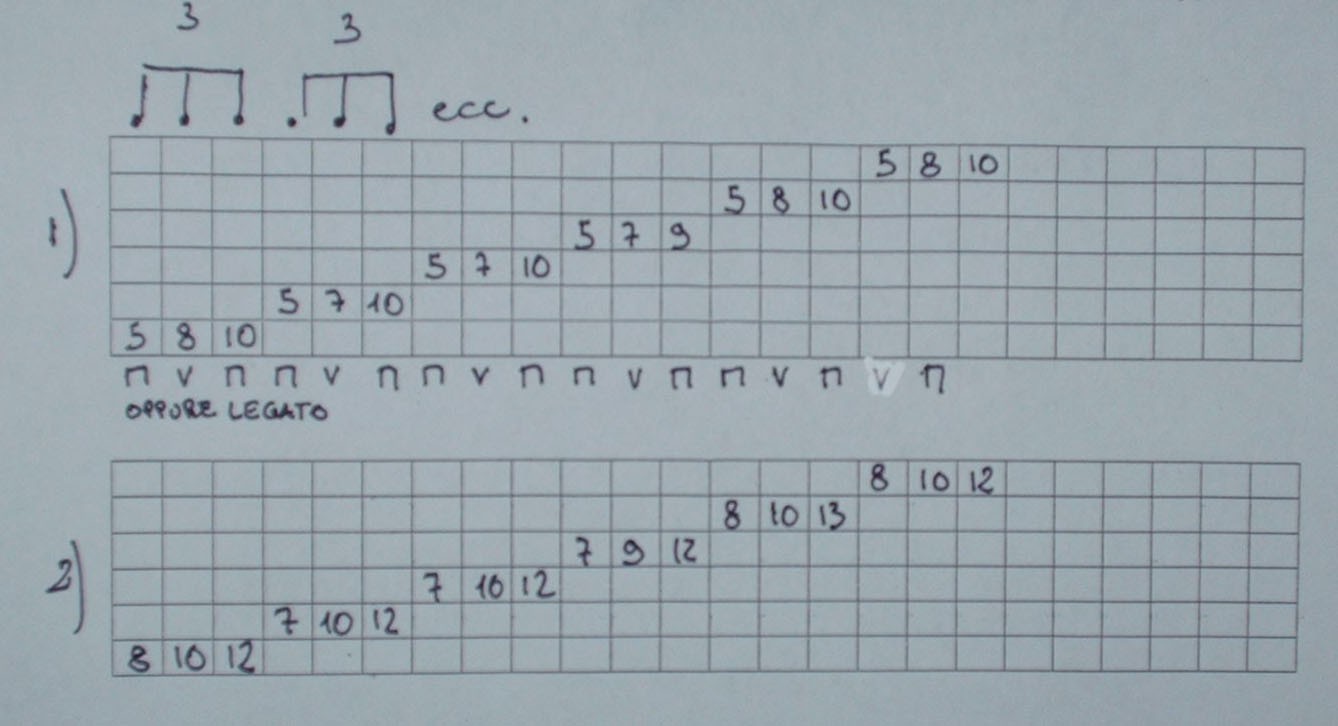 3 3
ecc.
5 8 10
5 8 10
1)
5 7 9
5 7 10
5 7 10
5 8 10
п v п п v п п v п п v п п v п v п
OPPURE LEGATO
8 10 12
8 10 13
2)
7 9 12
7 10 12
7 10 12
8 10 12